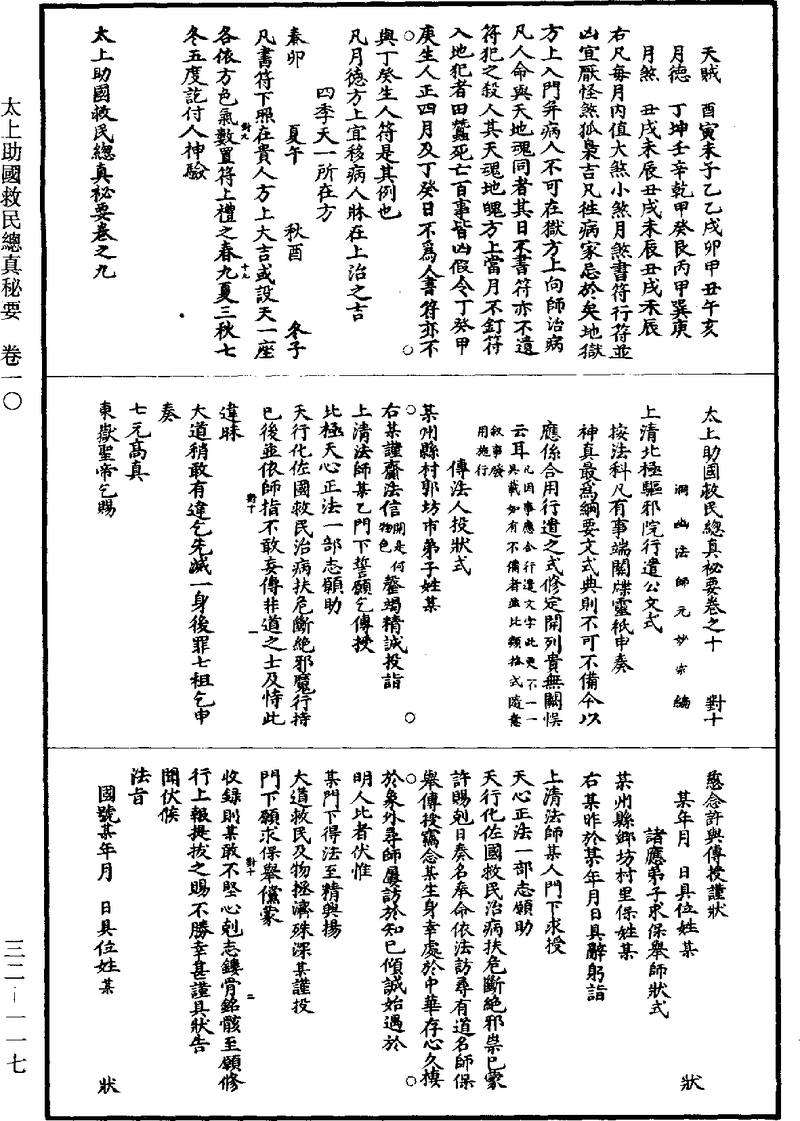 天賊　酉寅未子乙乙戌卯甲丑午亥
月德　丁坤壬辛乾甲癸艮丙甲巽庚
月煞　丑戌未辰丑戌未辰丑戌未辰
右凡每月內值大煞小煞月煞書符行符並
凶宜厭怪煞狐梟吉凡往病家忌於矣地獄
方上入門并病人不可在獄方上向師治病
凡人命與天地魂同者其日不書符亦不遺
符犯之殺人其天魂地魄方上當月不釘符
入地犯者田蠶死亡百事皆凶假令丁癸甲
庚生人正四月及丁癸日不爲人書符亦不
與丁癸生人符是其例也
凡月德方上宜移病人牀在上治之吉
四季天一所在方
春卯　夏午　秋酉　冬子
凡書符下照在貴人方上大吉或設天一座
各依方色氣數置符上禮之春九夏三秋七
對九　十九
冬五度訖付人神驗
太上助國救民總真秘要卷之九
太上助國救民總真秘要卷之十　對十
洞幽法師元妙宗編
上清北極驅邪院行遣公文式
按法科凡有事端關牒靈祇申奏
神真最爲綱要文式典則不可不備今以
應係合用行遣之式修定開列貴無關悮
云耳凡因事應合行遣文字此更不一一
具載如有不備者並比類格式隨意
敘事發
用施行
傳法人投狀式
某州縣村郭坊市弟子姓某
右某謹齎法信開是何物色罄竭精誠投詣
上清法師某乙門下誓願乞傳授
北極天心正法一部志願助
天行化佐國救民治病扶危斷絕邪魔行持
已後並依師指不敢妄傳非道之士及恃此
對十　一
違昧
大道稍敢有違乞先滅一身後罪七祖乞申
奏
七元高真
東嶽聖帝乞賜
慈念許與傳授謹狀
某年月　日具位姓某　狀
諸應弟子求保舉師狀式
某州縣鄉坊村里保姓某
右某昨於某年月日具辭躬詣
上清法師某人門下求授
天心正法一部志願助
天行化佐國救民治病扶危斷絕邪祟已蒙
許賜剋日奏名奉命依法訪尋有道名師保
舉傳授竊念某生身幸處於中華存心久棲
於象外尋師屢訪於知已傾誠始遇於
明人比者伏惟
某門下得法至精興揚
大道救民及物拯濟殊深某謹投
門下願求保舉儻蒙
對十　二
收錄則某敢不堅心剋志鏤骨銘骸至願修
行上報提拔之賜不勝幸甚謹具狀告
聞伏候
法旨
國號某年月　日具位姓某　狀
太上助國救民總真秘要　卷一〇
三二-一一七